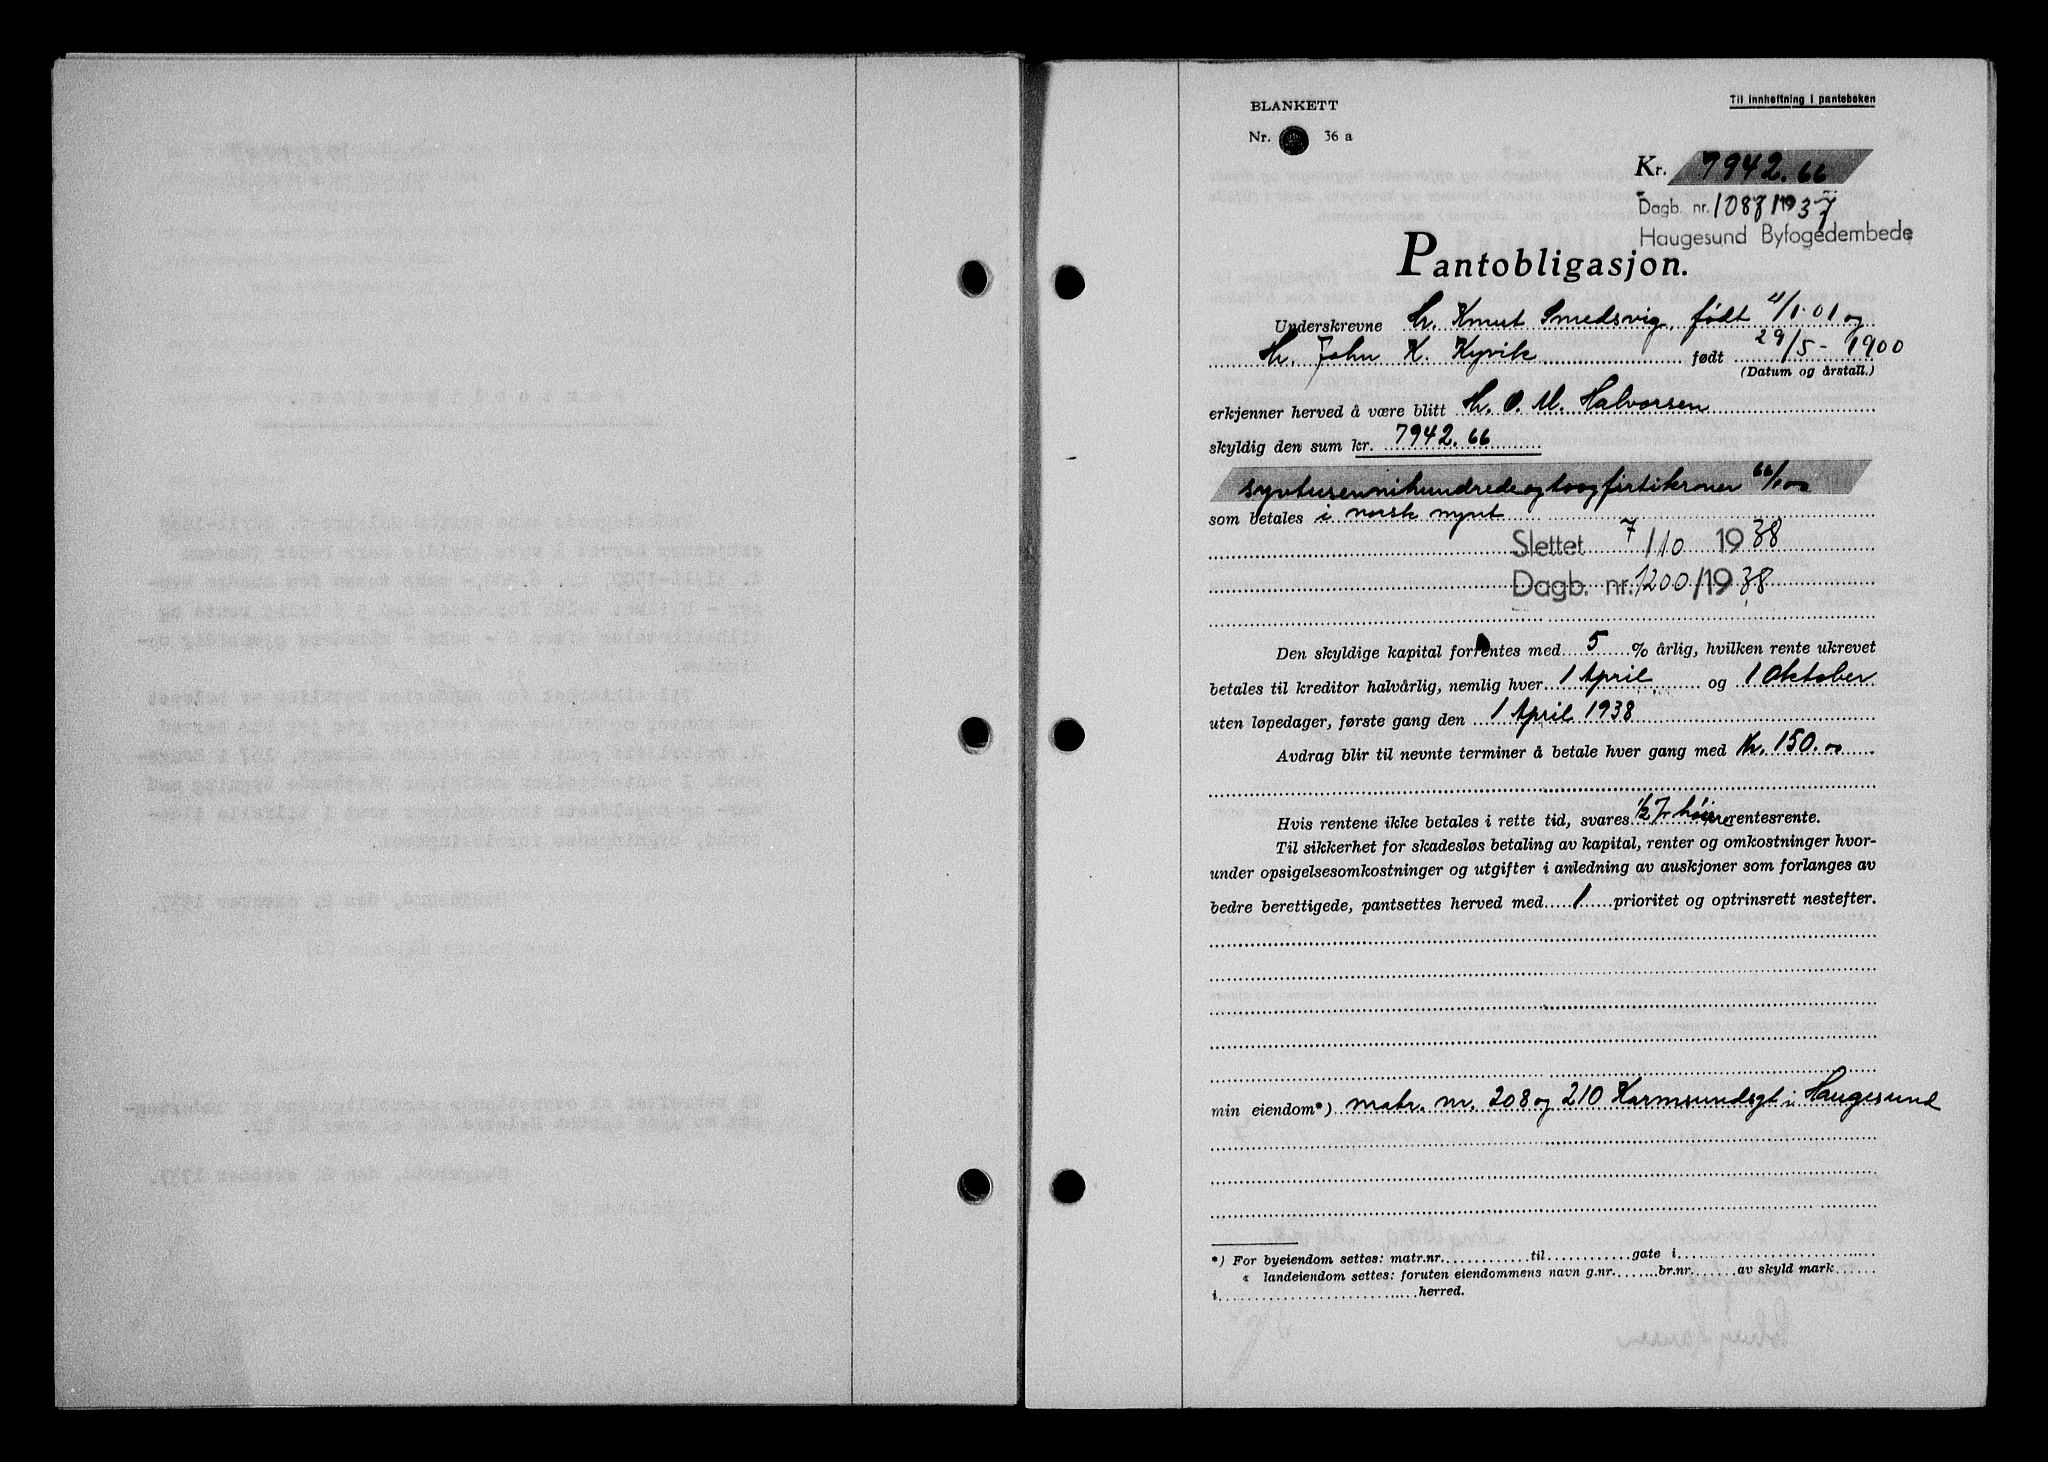 BLANKETT
Nr. 36 a
Til innheftning i panteboken
Kr. 7942.66
Dagb. nr. 1088/1937
Haugesund Byfogedembede
Pantobligasjon.
Underskrevne Hr. Knut Smedsvig, født 4/1-01 og
Hr. John K. Kyvik født 29/5-1900
(Datum og årstall.)
erkjenner herved å være blitt Hr. O. M. Halvorsen
skyldig den sum kr. 7942.66
syvtusennihundredeogtoogfirtikroner 66/100
som betales i norsk mynt
Slettet 7/10 1938
Dagb. nr. 1200/1938
Den skyldige kapital forrentes med 5 % årlig, hvilken rente ukrevet
betales til kreditor halvårlig, nemlig hver 1 April og 1 Oktober
uten løpedager, første gang den 1 April 1938
Avdrag blir til nevnte terminer å betale hver gang med Kr. 150.00
Hvis rentene ikke betales i rette tid, svares 1/2 % høiere rentesrente.
Til sikkerhet for skadesløs betaling av kapital, renter og omkostninger hvor-
under opsigelsesomkostninger og utgifter i anledning av auskjoner som forlanges av
bedre berettigede, pantsettes herved med 1 prioritet og optrinsrett nestefter.
min eiendom*) matr. nr. 208 og 210 Karmsundsgt i Haugesund
*) For byeiendom settes: matr.nr. til gate i
« landeiendom settes: foruten eiendommens navn g.nr. br.nr. av skyld mark
i herred.